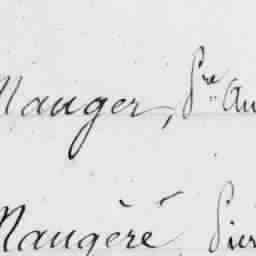 Mauger, Pre Au
Maugèré, Pier